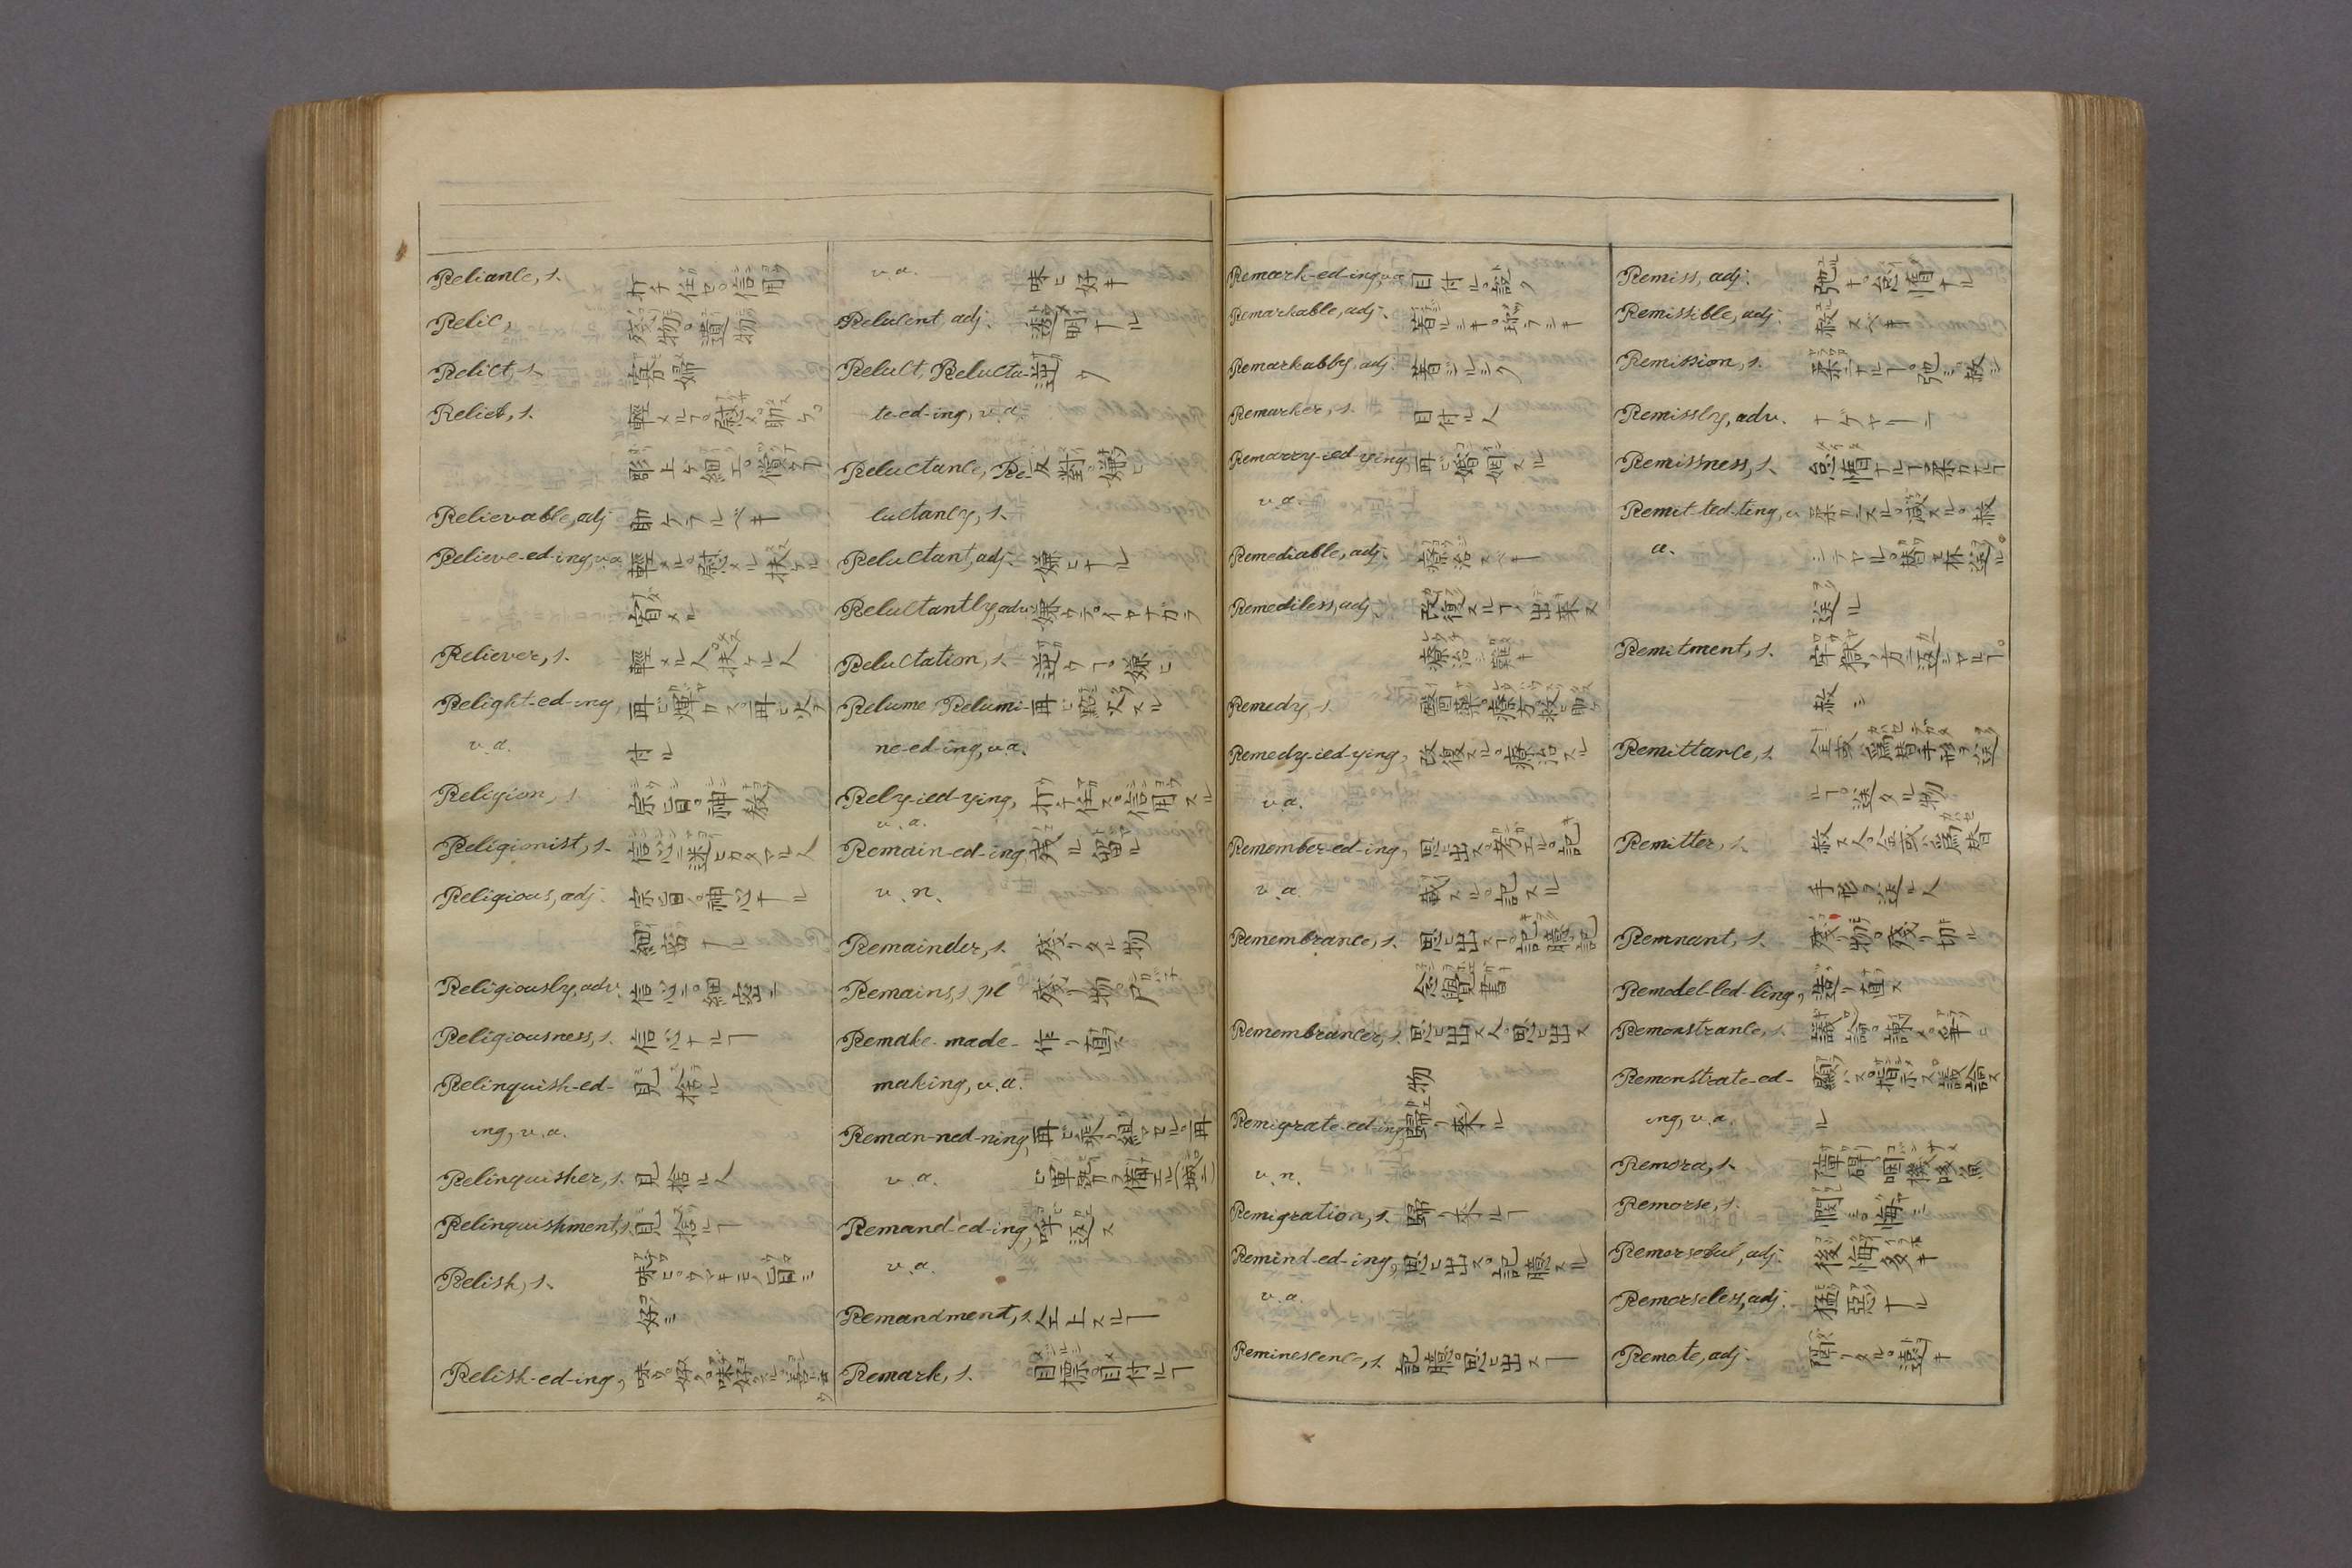 Reliance, s. 打チ任セ。信用
Relic, 残物。遺物
Relict, s. 寡婦
Relief, s. 輕メルヿ。慰メ。助ケ。
彫上ケ細工。償ヒ
Relievable, adj 助ケラルベキ
Relieve-ed-ing, v.a. 輕メル。慰メル。扶ケル
宥メル
Reliever, s. 輕メル人。扶ケル人
Relight-ed-ing, 再ヒ輝カス。再ヒ火ヲ
v.a. 付ル
Religion, s. 宗旨。神教
Religionist, s. 信心ニ迷ヒカタマル人
Religious, adj. 宗旨。神心ナル
細密ナル
Religiously, adv. 信心ニ。細密ニ
Religiousness, s. 信心ナルヿ
Relinquish-ed- 見捨ル
ing, v.a.
Relinquisher, s. 見捨ル人
Relinquishment, s. 見捨ルヿ
Relish, s. 味ヒ。ウマキモノ。旨ミ
好ミ
Relish-ed-ing, 味フ。好ク。
v.a. 味ヒ好キ
Relucent, adj. 透明ナル
Reluct, Relucta- 逆フ
te-ed-ing, v.a.
Reluctance, Re- 反對。嫌ヒ
luctancy, s.
Reluctant, adj. 嫌ヒナル
Reluctantly, adv. 嫌フテ。イヤナガラ
Reluctation, s. 逆フヿ。嫌ヒ
Relume, Relumi- 再ヒ點火スル
ne-ed-ing, v.a.
Rely-ied-ying, 打チ任ス。信用スル
v.a.
Remain-ed-ing, 残ル。留ル
v.n.
Remainder, s. 残リタル物
Remains, s. pl 残リ物。死ガイ
Remake-made- 作リ直ス
making, v.a.
Reman-ned-ning, 再ヒ乘リ組マセル。再
v.a.
Remand-ed-ing, 呼返ス
v.a.
Remandment, s. 仝上スルヿ
Remark, s. 目標。目付ルヿ
Remark-ed-ing, v.a 目付ル。認ク
Remarkable, adj. 著ルシキ。珍ラシキ
Remarkabby, adj. 著シルシク
Remarker, s. 目付ル人
Remarry-ied-ying, 再ヒ婚姻スル
v.a.
Remediable, adj. 療治スベキ
Remediless, adj. 改復スルヿノ出来ヌ
療治シ難キ
Remedy, s. 醫藥。療方。救ヒ助ケ
Remedy-ied-ying, 改復スル。療治スル
v.a.
Remember-ed-ing, 思ヒ出ス。考エル。記
v.a. 載スル。記スル
Remembrance, s. 思ヒ出スヿ。記臆。記
念。覺書
Remembrancer, s. 思ヒ出ス人。思ヒ出ス
物
Remigrate-ed-ing, 歸リ来ル
v.n.
Remigration, s. 歸リ来ルヿ
Remind-ed-ing, 思ヒ出ス。記臆スル
v.a.
Reminescence, s. 記臆。思ヒ出スヿ
Remiss, adj. 弛キ。怠惰ナル
Remissible, adj. 赦スベキ
Remission, s. 柔カナルヿ。弛ミ。赦シ
Remissly, adv. ナゲヤリニ
Remissness, s. 怠惰ナルヿ。柔カナルヿ
Remit-ted-ting, v. 柔カニスル。減スル。赦
a.
送ル
Remitment, s. 牢獄ノ方ニ返シヤルヿ。
赦シ
Remittance, s. 金或ハ為替手形ヲ送
ルヿ。送タル物
Remitter, s. 赦ス人。金或ハ為替
手形ヲ送ル人
Remnant, s. 残リ物。残リ切ル
Remodel-led-ling, 造リ直ス
Remonstrance, s. 議論。諌メ。争ヒ
Remonstrate-ed- 顕ハス。指示ス。議論ス
ing, v.a. ル
Remora, s. 障碍。
Remorse, s. 悶ヘ。悔ヤミ
Remorseful, adj. 後悔多キ
Remorseless, adj. 猛惡ナル
Remote, adj. 隔リタル。遠キ